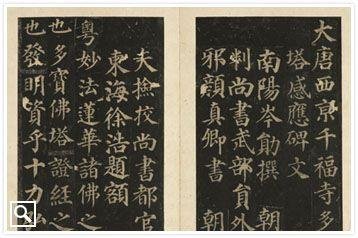 大唐西京千福寺多
塔感應碑文
南陽岑勛撰 朝
判尚書武部員外
邪顏真卿書 朝
夫撿校尚書都官
東海徐浩題額
粵妙法蓮華諸佛之
也多寶佛塔證經之
也發明資乎十力弘